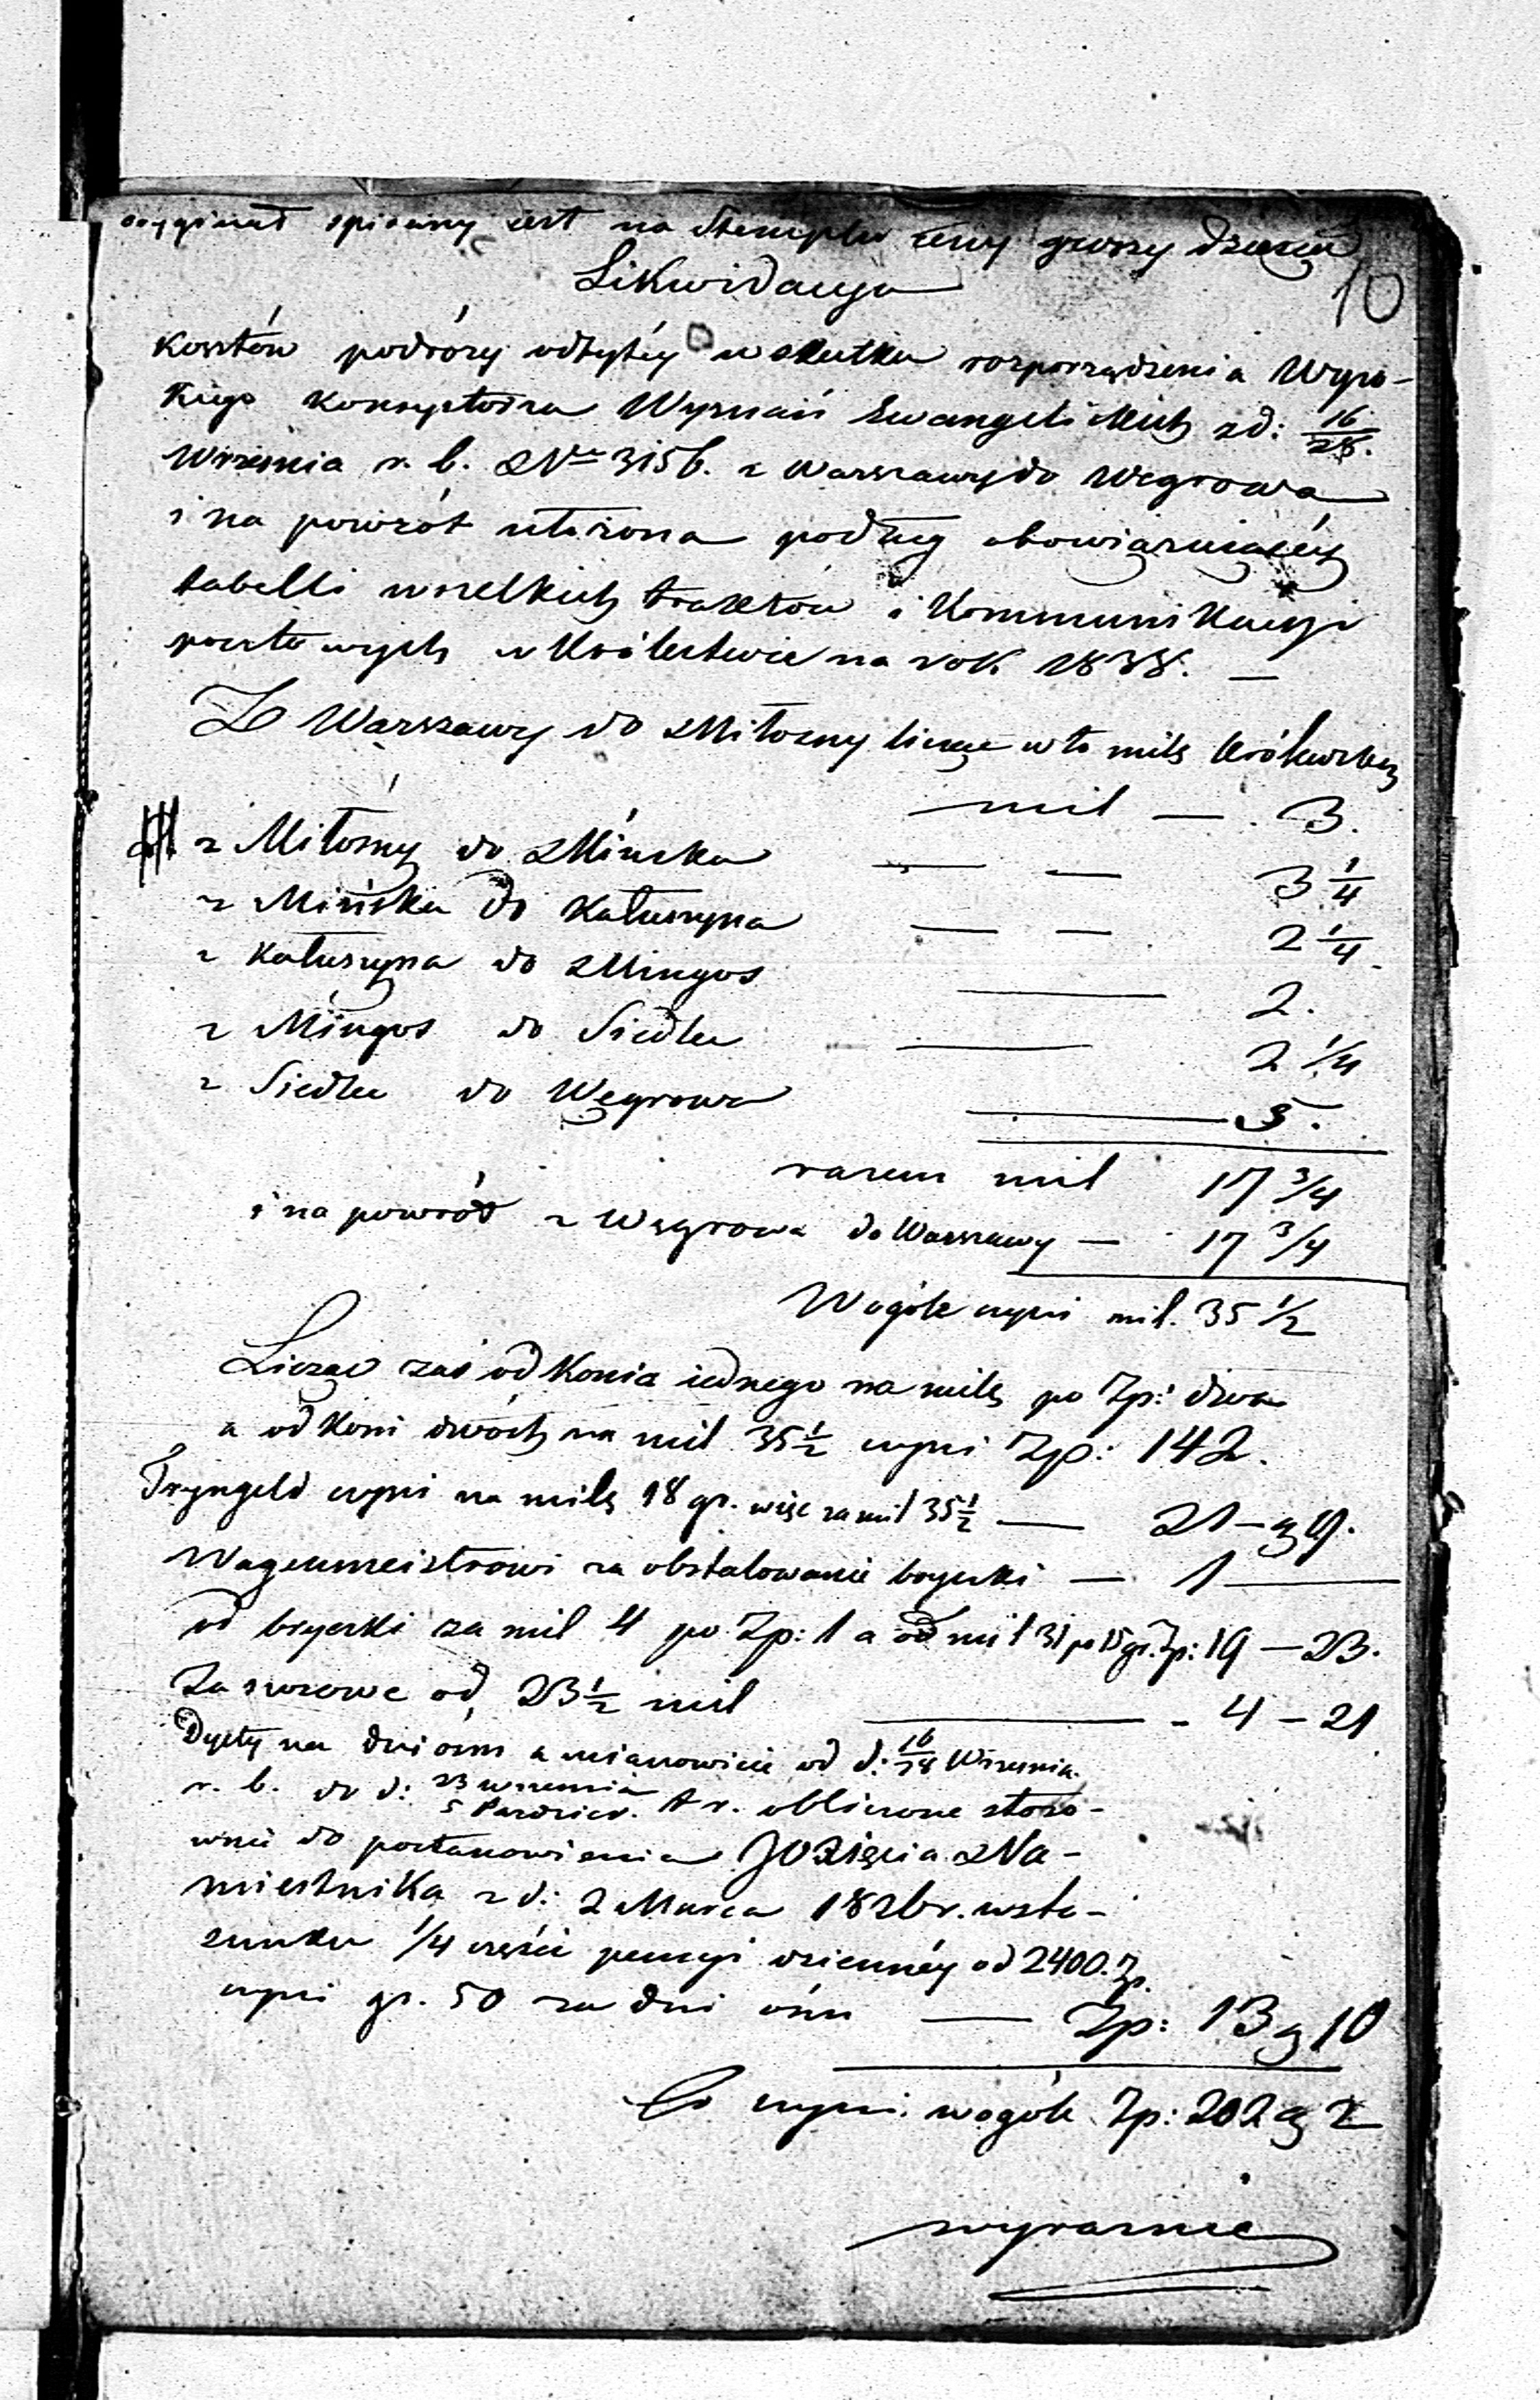 oryginał spisany iest na Stemplu ceny groszy dziesięć
10
Likwidacya
kosztów podróży odbytéy w skutku rozporządzenia Wyso-
kiego Konsystorza Wyznań Ewangelickich z d: 16/28.
Września r. b. N° 3156. z Warszawy do Węgrowa
i na powrót ułożona podług obowiązuiącéy
tabelli wszelkich traktów i Kommunikacyi
pocztowych w Królestwie na rok 1838. —
Z Warszawy do Miłosny licząc w to milę Królewską
mil — 3.
z Miłosny do Mińska — — 3 1/4
z Mińska do Kałuszyna — — 2 1/4
z Kałuszyna do Mingos — 2.
z Mingos do Siedlec — 2 1/4
z Siedlec do Węgrowa — 5.
razem mil 17 3/4
i na powrót z Węgrowa do Warszawy — 17 3/4
Wogóle czyni mil. 35 1/2
Licząc zaś od Konia iednego na milę po Zp: dwa
a od Koni dwóch na mil 35 1/2 czyni Zp: 142.
Tryngeld czyni na milę 18 gr. więc za mil 35 1/2 — 21 — g 9.
Wagenmeistrowi za obstalowanie bryczki — 1 —
od bryczki za mil 4 po Zp: 1 a od mil 31 po 15 gr. Zp: 19 — 23.
Za smarowe od 23 1/2 mil — 4 — 21
Dyety na dni ośm a mianowicie od d: 16/28 Września
r. b. do d: 23 września / 5 Paździer. t r. obliczone stoso-
wnie do postanowienia JO Xięcia Na-
miestnika z d: 2 Marca 1826 r. w sto-
sunku 1/4 części pensyi dzienney od 2400. Zp.
czyni gr. 50 za dni ośm — Zp: 13 g 10
Co czyni wogóle Zp: 202 g 2
wyraznie